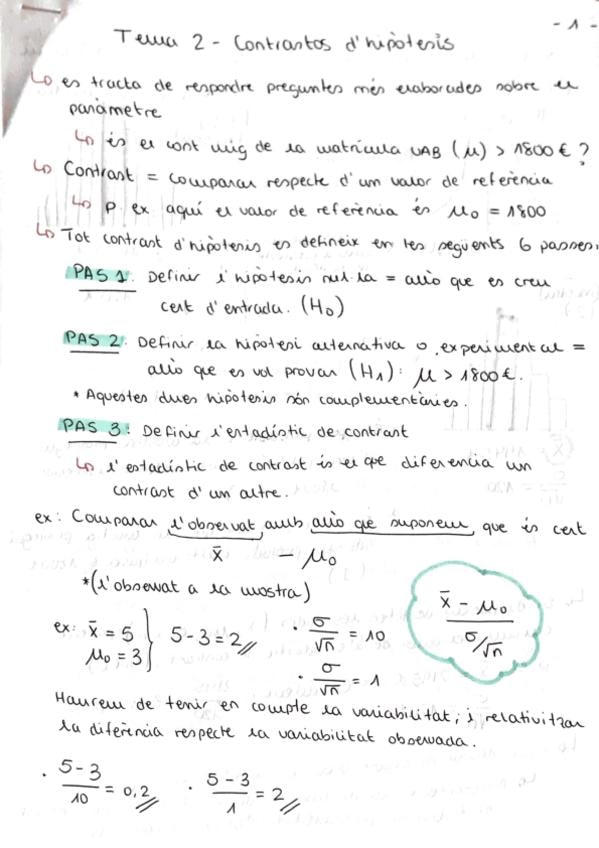 - 1 -
Tema 2 - Contrastos d'hipòtesis
↳ es tracta de respondre preguntes més elaborades sobre el
paràmetre
↳ és el cost mig de la matrícula UAB (μ) > 1800 € ?
↳ Contrast = comparar respecte d'un valor de referència
↳ p. ex aquí el valor de referència és μ₀ = 1800
↳ Tot contrast d'hipòtesis es defineix en les següents 6 passes:
PAS 1: Definir l'hipòtesis nul·la = allò que es creu
cert d'entrada. (H₀)
PAS 2: Definir la hipòtesi alternativa o experimental =
allò que es vol provar (H₁): μ > 1800€.
* Aquestes dues hipòtesis són complementàries.
PAS 3: Definir l'estadístic de contrast
↳ l'estadístic de contrast és el que diferencia un
contrast d'un altre.
ex: Comparar l'observat amb allò que suposem que és cert
x̄ - μ₀
*(l'observat a la mostra)
ex: x̄ = 5
μ₀ = 3
} 5 - 3 = 2
· σ/√n = 10
· σ/√n = 1
(x̄ - μ₀)/(σ/√n)
Haurem de tenir en compte la variabilitat, i relativitzar
la diferència respecte la variabilitat observada.
· (5-3)/10 = 0,2 · (5-3)/1 = 2